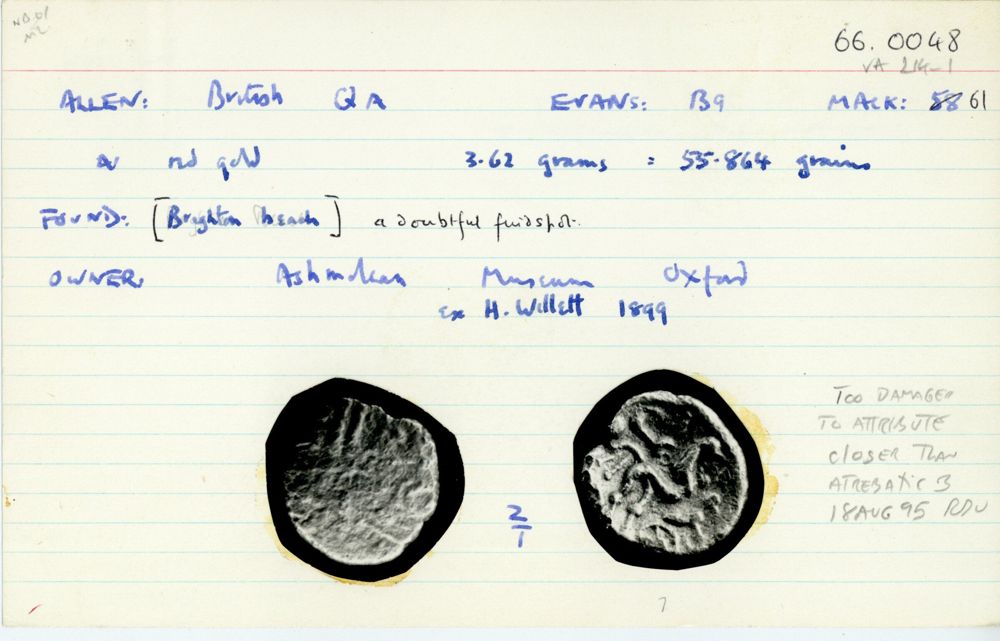 66.0048
VA 214-1
ALLEN: British QA EVANS: B9 MACK: 58 61
red gold 3.62 grams = 55.864 grains
FOUND: [Brighton beach] a doubtful findspot.
OWNER: Ashmolean Museum Oxford
ex H. Willett 1899
TOO DAMAGED
TO ATTRIBUTE
CLOSER THAN
ATREBATIC 3
18 AUG 95 RDV
2/1
7